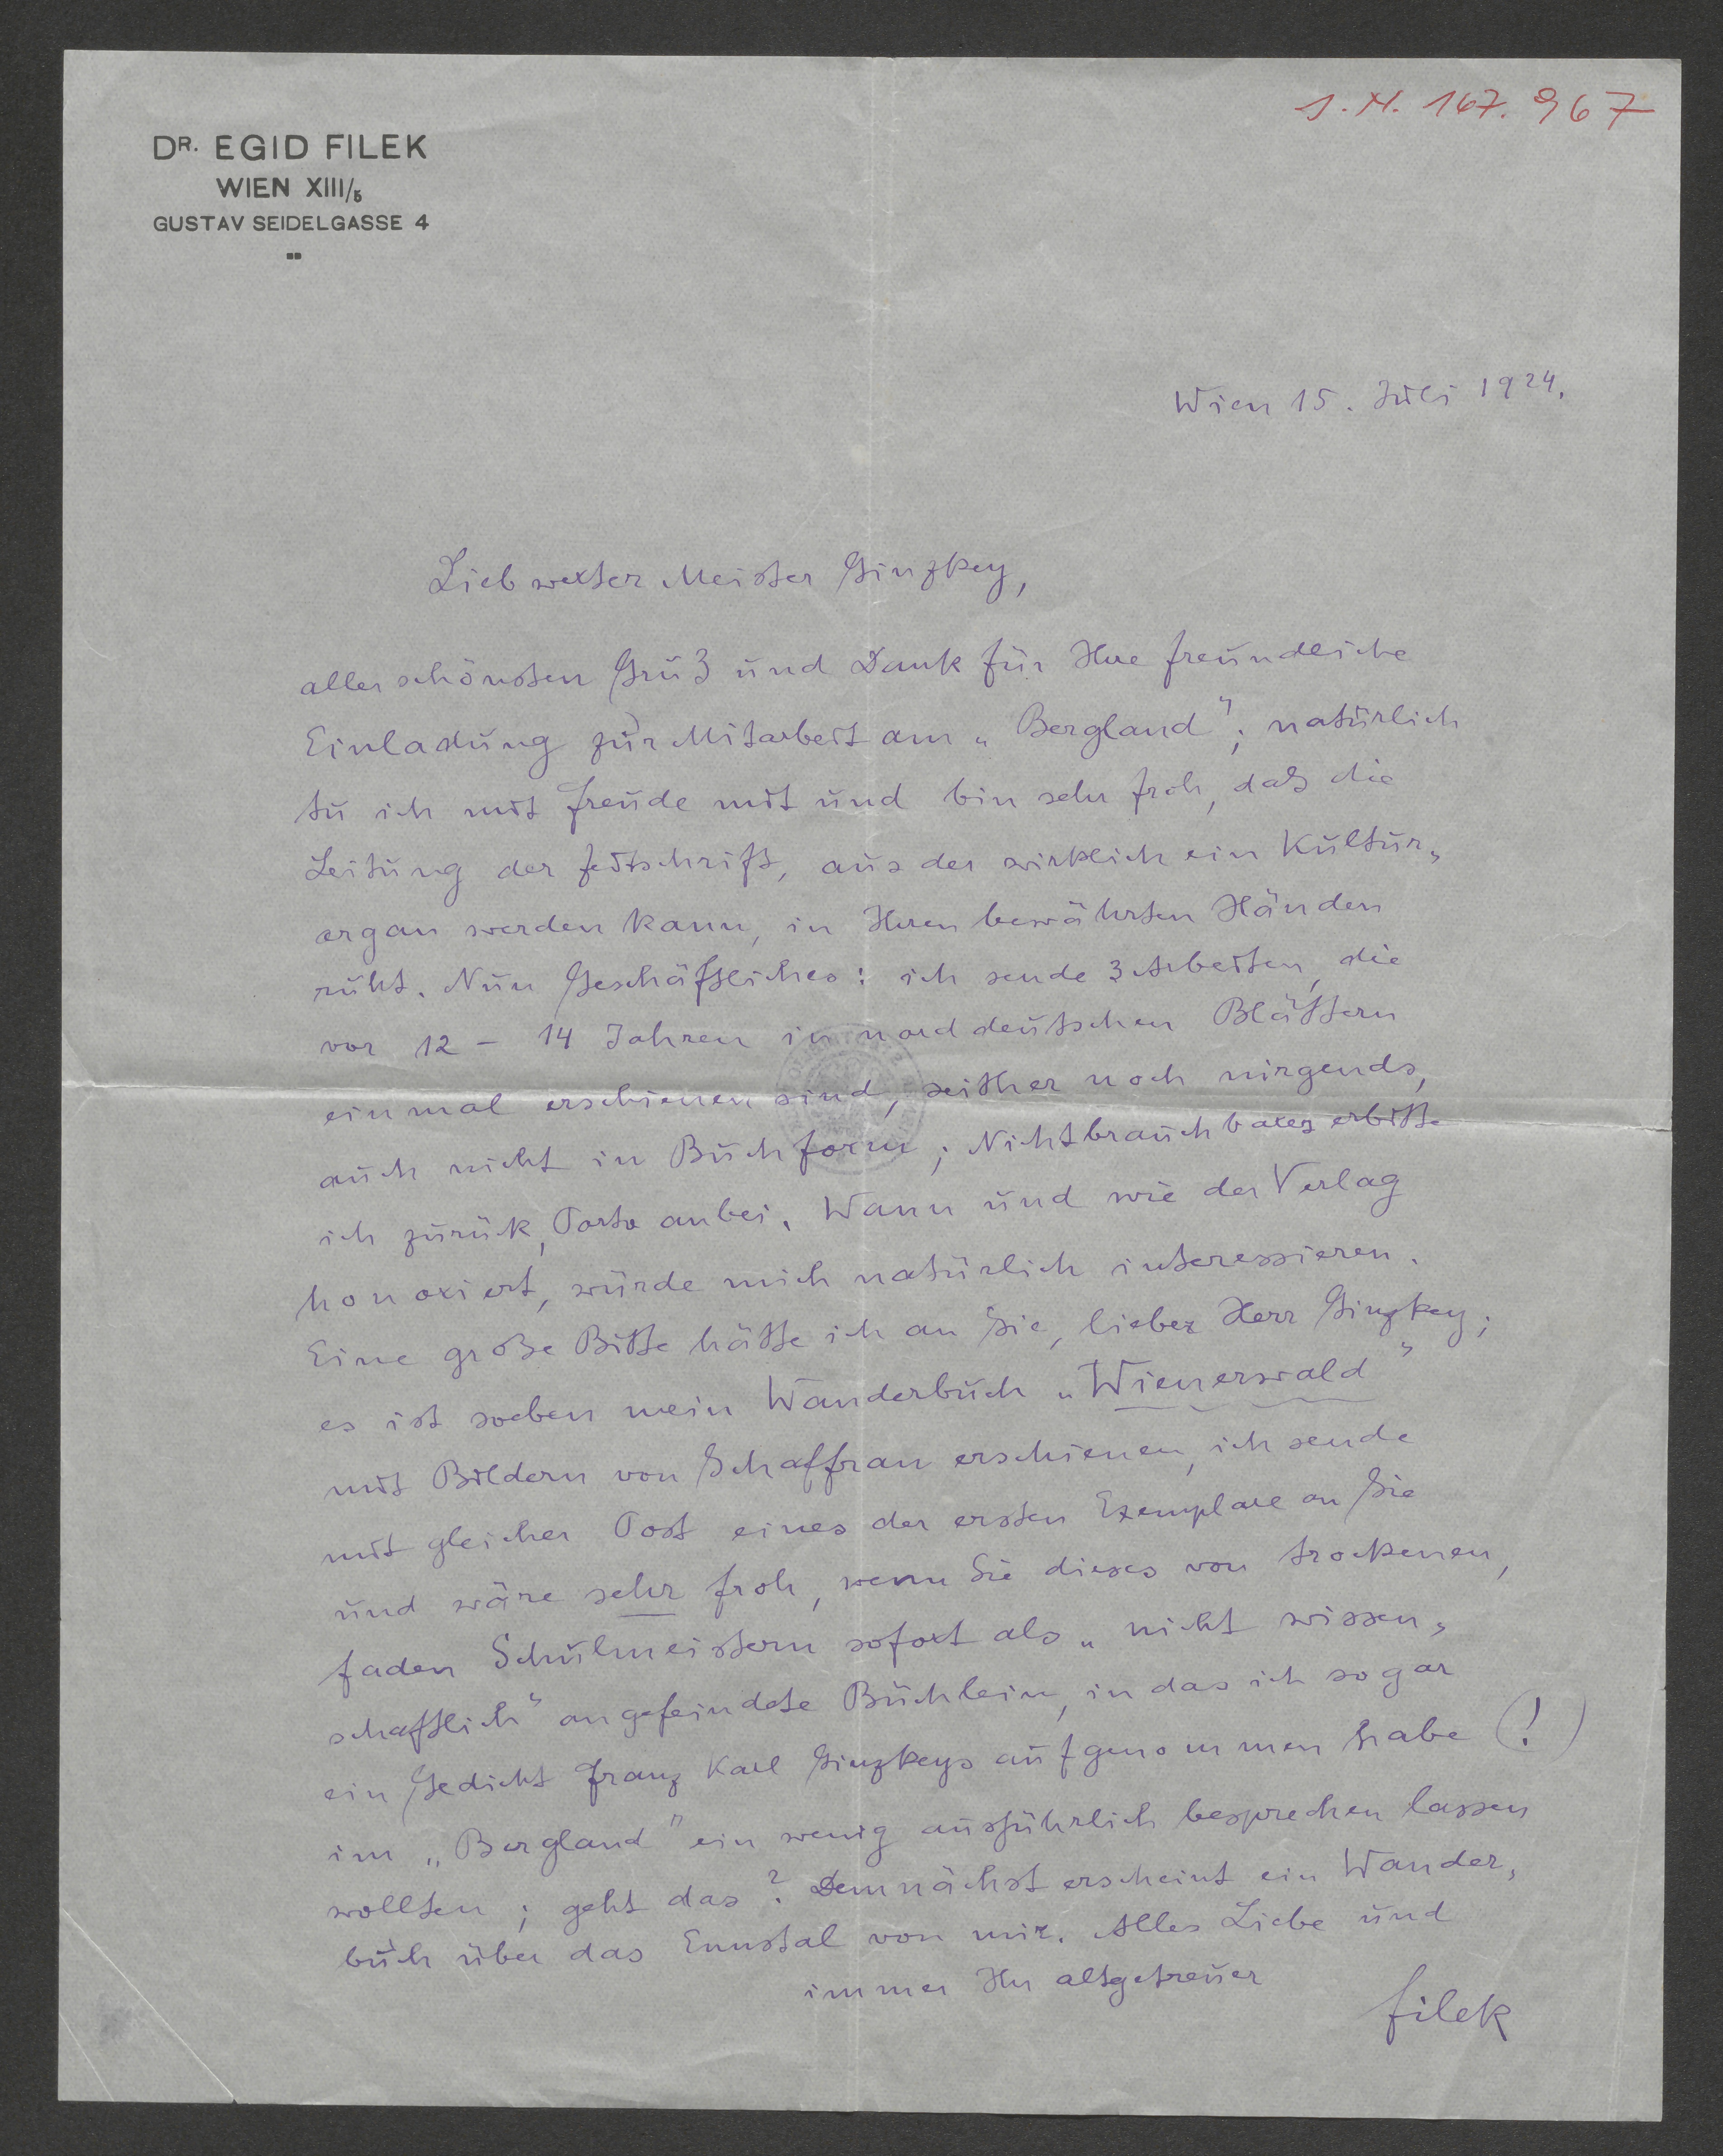 J. N. 167.967
DR. EGID FILEK
WIEN XIII/5
GUSTAV SEIDELGASSE 4
Wien 15. Juli 1924.
Liebwerter Meister Ginzkey,
allerschönsten Gruß und Dank für Ihre freundliche
Einladung zur Mitarbeit am „Bergland"; natürlich
tu ich mit Freude mit und bin sehr froh, daß die
Leitung der Zeitschrift, aus der wirklich ein Kultur„
organ werden kann, in Ihren bewährten Händen
ruht. Nun Geschäftliches: ich sende 3 Arbeiten, die
vor 12 – 14 Jahren in norddeutschen Blättern
einmal erschienen sind, seither noch nirgends,
auch nicht in Buchform; Nichtbrauchbares erbitte
ich zurück, Porto anbei. Wann und wie der Verlag
honoriert, würde mich natürlich interessieren.
Eine große Bitte hätte ich an Sie, lieber Herr Ginzkey;
es ist soeben mein Wanderbuch „Wienerwald"
mit Bildern von Schaffran erschienen, ich sende
mit gleicher Post eines der ersten Exemplare an Sie
und wäre sehr froh, wenn Sie dieses von trockenen,
faden Schulmeistern sofort als „nicht wissen„
schaftlich" angefeindete Büchlein, in das ich sogar
ein Gedicht Franz Karl Ginzkeys aufgenommen habe (!)
im „Bergland" ein wenig ausführlich besprechen lassen
wollten; geht das? Demnächst erscheint ein Wander„
buch über das Ennstal von mir. Alles Liebe und
immer Ihr altgetreuer
Filek